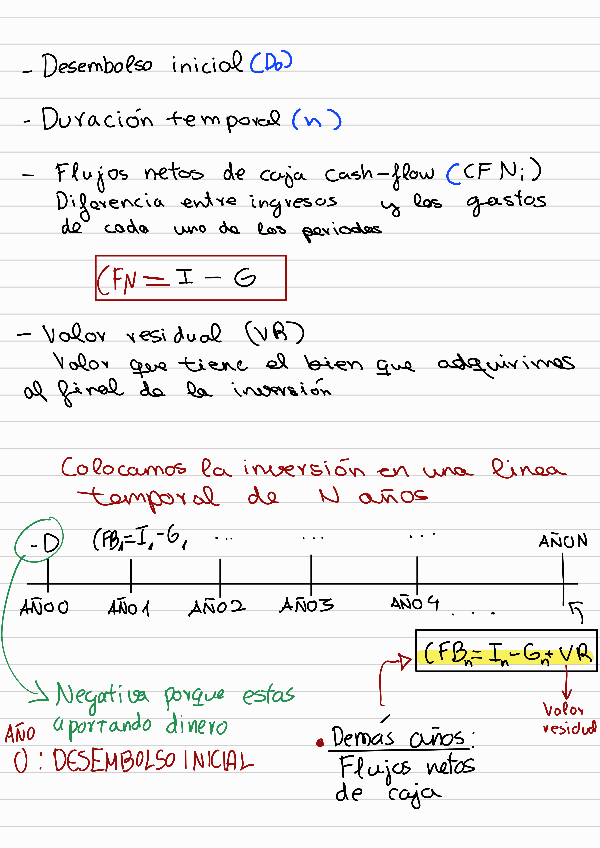 - Desembolso inicial (D₀)
- Duración temporal (n)
- Flujos netos de caja cash-flow (CFNi)
Diferencia entre ingresos y los gastos
de cada uno de los periodos
CFN = I - G
- Valor residual (VR)
Valor que tiene el bien que adquirimos
al final de la inversión
Colocamos la inversión en una linea
temporal de N años
-D CFB₁=I₁-G₁ ... ... ... AÑO N
AÑO 0 AÑO 1 AÑO 2 AÑO 3 AÑO 4 ....
CFBₙ=Iₙ-Gₙ+VR
Negativa porque estas
aportando dinero
Valor
residual
AÑO
0: DESEMBOLSO INICIAL
• Demás años:
Flujos netos
de caja